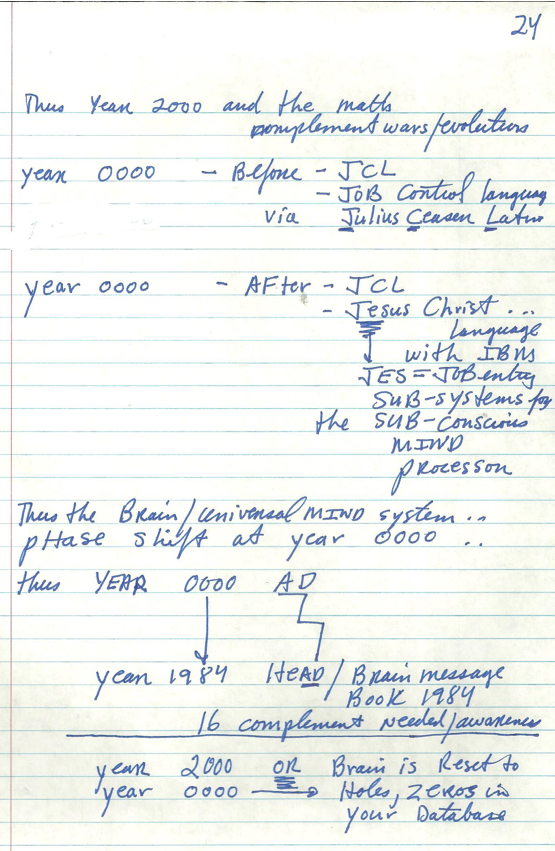 24
Thus Year 2000 and the math
complement wars/evolutions
year 0000 - Before - JCL
- JOB Control language
via Julius Ceaser Latin
year 0000 - AFter - JCL
- Jesus Christ ...
language
with IBMs
JES = JOB entry
SUB-systems for
the SUB-conscious
MIND
processor
Thus the Brain/universal MIND system ..
pHase shift at year 0000 ..
thus YEAR 0000 AD
year 1984 HeAD / Brain message
Book 1984
16 complement needed/awareness
year 2000 OR Brain is Reset to
year 0000 → Holes, zeros in
your Database